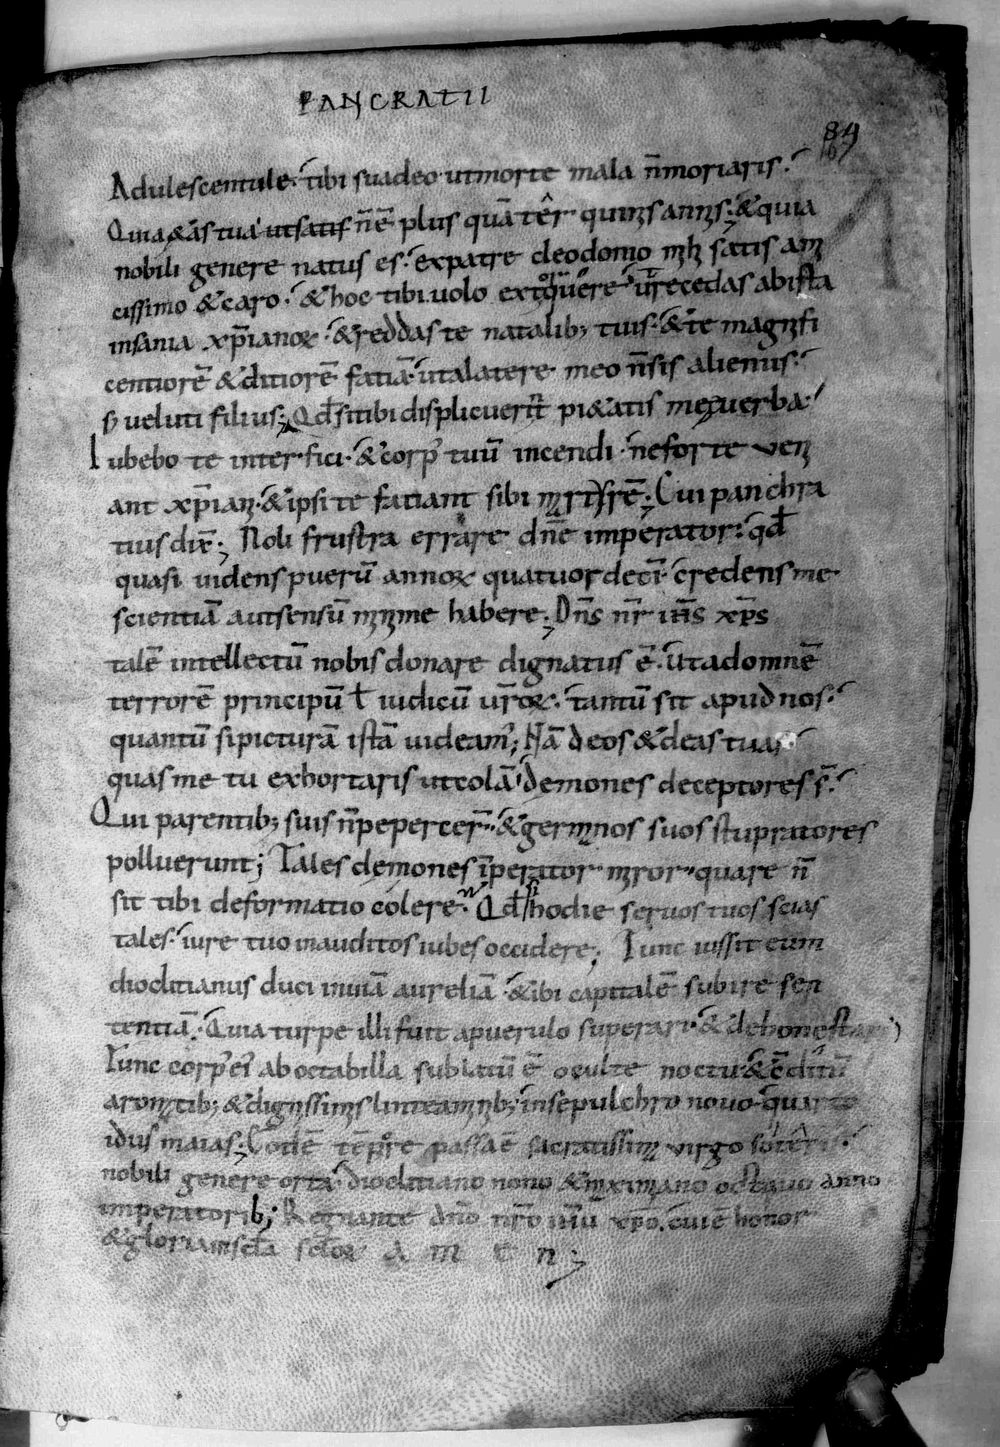 PANCRATII
84
Adulescentule· tibi suadeo ut morte mala n̄ moriaris·
Quia &as tua ut satif n̄ ē plus quā têr quinis annis; & quia
nobili genere natus es· ex patre cleodomo mihi satis ami
cissimo & caro· & hoc tibi uolo ut recedas ab ista
insania xp̄ianoꝝ· & reddas te natalib; tuis· & te magnifi
centiorē & ditiorē fatiā· ut a latere meo n̄ sis alienus·
s; ueluti filius; Qd̄ si tibi displicuerit pi&atis meę uerba·
Iubebo te interfici· & corp' tuū incendi· ne forte ueni
ant xp̄iani· & ipsi te fatiant sibi Cui panchra
tius dix̄; Noli frustra errare dn̄e imperator· qd̄
quasi uidens puerū annoꝝ quatuordeci· credens me
scientiā aut sensū minime habere; Dn̄s nr̄ ih̄s xp̄s
talē intellectū nobis donare dignatus ē· ut ad omnē
terrorē principū ł iudicū ur̄oꝝ· tantū sit apud nos·
quantū si picturā istā uideam'; Nā deos & deas tuas
quas me tu exhortaris ut colā· demones deceptores s̄·
Qui parentib; suis n̄ pepercer̄· & germanos suos stupratores
polluerunt; Tales demones īperator miror quare n̄
sit tibi deformatio colere· Qd̄ si hodie seruos tuos scias
tales· iure tuo inauditos iubes occidere; Tunc iussit eum
dioclitianus duci in uiā aureliā· & ibi capitalē subire sen
tentiā· Quia turpe illi fuit a puerulo superari· & dehonestari
Tunc corp' ei' ab octabilla sublatū ē oculte noctu· & cōditū
aromatib; & dignissimis linteaminib; in sepulchro nouo· quarto
idus maias; Eodē tēpore passa ē sacratissima uirgo soteris·
nobili genere orta· dioclitiano nono & maximiano octauo anno
imperatorib; Regnante dn̄o nr̄o ih̄u xp̄o· cui ē honor
& gloria in scl̄a scl̄oꝝ a m e n;